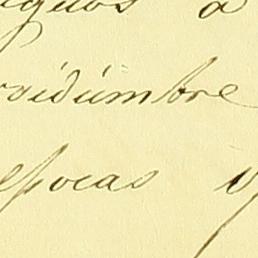 iguos a
rsidúmbre
epocas y